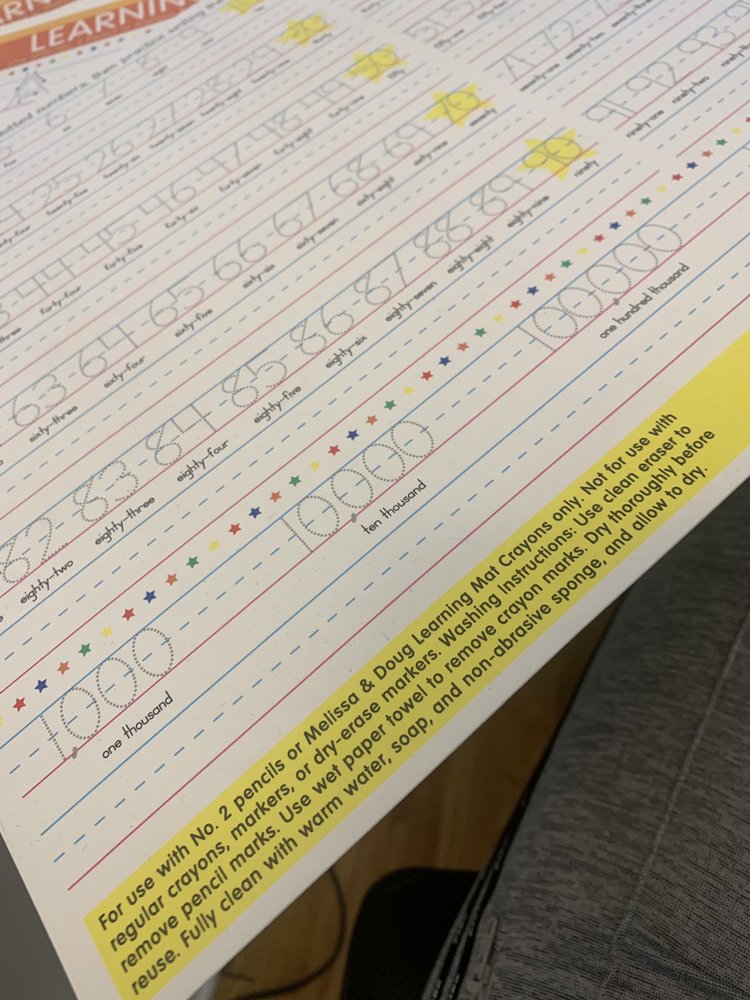 LEARNING
numbers, then practice writing
5 6 7 8 9 10
five six seven eight nine
25 26 27 28 29 30
twenty-five twenty-six twenty-seven twenty-eight twenty-nine thirty
44 45 46 47 48 49 50
forty-four forty-five forty-six forty-seven forty-eight forty-nine fifty
63 64 65 66 67 68 69 70
sixty-three sixty-four sixty-five sixty-six sixty-seven sixty-eight sixty-nine seventy
82 83 84 85 86 87 88 89 90
eighty-two eighty-three eighty-four eighty-five eighty-six eighty-seven eighty-eight eighty-nine ninety
51 52
fifty-one
71 72
seventy-one seventy-two
91 92 93
ninety-one ninety-two
1,000 10,000 100,000
one thousand ten thousand one hundred thousand
For use with No. 2 pencils or Melissa & Doug Learning Mat Crayons only. Not for use with
regular crayons, markers, or dry-erase markers. Washing Instructions: Use clean eraser to
remove pencil marks. Use wet paper towel to remove crayon marks. Dry thoroughly before
reuse. Fully clean with warm water, soap, and non-abrasive sponge, and allow to dry.